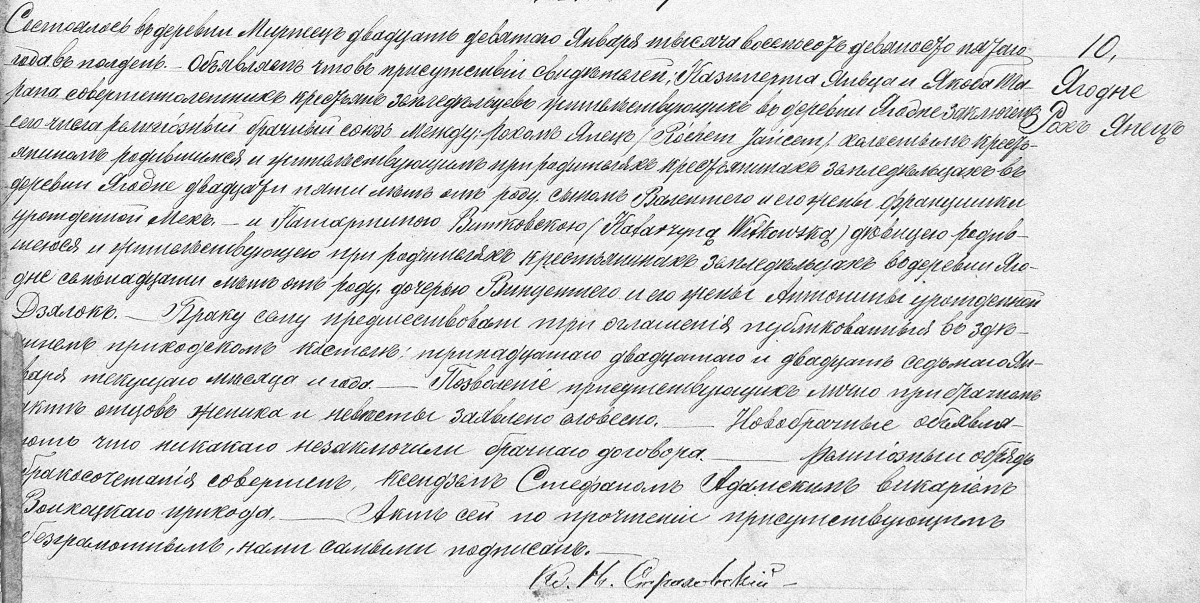 Состоялось въ деревни Миржецъ двадцать девятаго Января тысяча восемьсотъ девяносто пятаго
года въ полдень. — Объявляемъ что въ присутствіи свидѣтелей, Казимерта Яньца и Якова Ша-
рапа совершеннолетникъ крестьянъ земледѣльцевъ жительствующихъ въ деревни Ягодне заключенъ
сего числа религіозный брачный союзъ между: Рохомъ Янецъ (Rochem Jańcem) холостымъ кресть-
яниномъ родившимся и жительствующимъ при родителяхъ крестьянинахъ земледѣльцахъ въ
деревни Ягодне двадцати пяти лѣтъ отъ роду сыномъ Валентего и его жены Францишки
урожденной Мехъ. — и Катаржиною Витковскою (Katarzyną Witkowską) дѣвицею родив-
шеюся и жительствующею при родителяхъ крестьянинахъ земледѣльцахъ въ деревни Яго-
дне семьнадцати лѣтъ отъ роду. дочерью Винцентего и его жены Антонины урожденной
Дзялокъ. — Браку сему предшествовали три оглашенія публикованный въ здѣ-
шнемъ приходскомъ костелѣ: тринадцатаго двадцатаго и двадцать седьмаго Ян-
варя текущаго мѣсяца и года. — Позволеніе присутствующихъ лично при брачномъ
актѣ отцовъ жениха и невѣсты заявлено словесно. — Новобрачные объявля-
ютъ что никакаго незаключили брачнаго договора. — Религіозный обрядъ
бракосочетанія совершенъ, ксендземъ Стефаномъ Адамскимъ викаріемъ
прихода. — Актъ сей по прочтеніи присутствующимъ
безграмотнымъ, нами самыми подписанъ. —
Кс. Н.
10,
Ягодне
Рохъ Янецъ